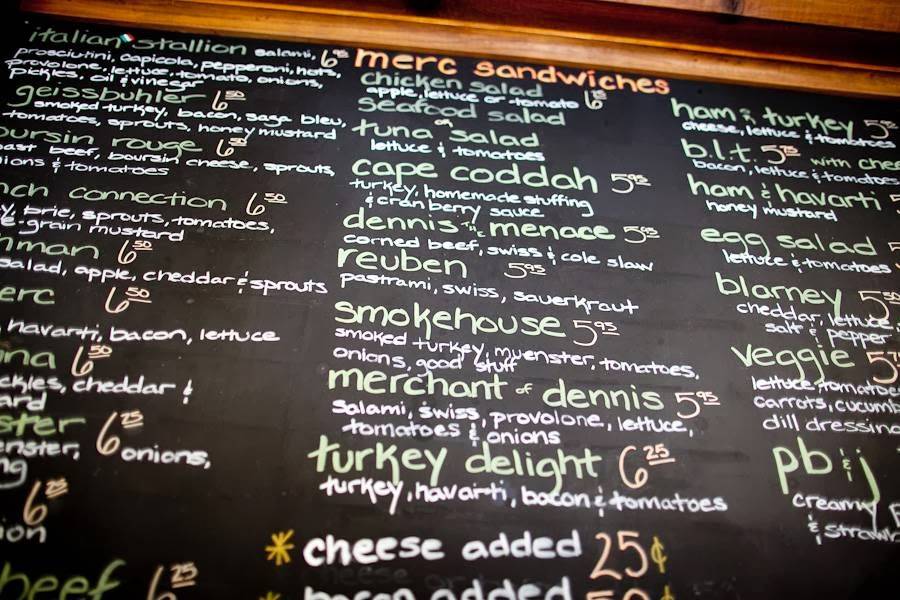 italian stallion salami, 6.95
prosciutini, capicola, pepperoni, hots,
provolone, lettuce, tomato, onions,
pickles, oil & vinegar
geissbuhler 6.50
smoked turkey, bacon, sage bleu,
tomatoes, sprouts, honey mustard
boursin rouge 6.50
roast beef, boursin cheese, sprouts,
& tomatoes
connection 6.50
brie, sprouts, tomatoes,
grain mustard
6.50
salad, apple, cheddar & sprouts
6.50
havarti, bacon, lettuce
6.50
cheddar &
6.25
onions,
6.25
beef 6.25
merc sandwiches
chicken salad 6.15
apple, lettuce or tomato
seafood salad
or
tuna salad
lettuce & tomatoes
cape coddah 5.95
turkey, homemade stuffing
& cranberry sauce
dennis the menace 5.95
corned beef, swiss & cole slaw
reuben 5.95
pastrami, swiss, sauerkraut
smokehouse 5.95
smoked turkey, muenster, tomatoes,
onions, good stuff
merchant of dennis 5.95
salami, swiss, provolone, lettuce,
tomatoes & onions
turkey delight 6.25
turkey, havarti, bacon & tomatoes
* cheese added 25¢
* bacon added 50¢
ham & turkey
cheese, lettuce & tomatoes
b.l.t. 5.75 with
bacon, lettuce & tomatoes
ham & havarti
honey mustard
egg salad
lettuce & tomatoes
blarney 5.50
cheddar, lettuce,
salt & pepper
veggie
lettuce, tomatoes
carrots,
dill dressing
pb & j
creamy
&